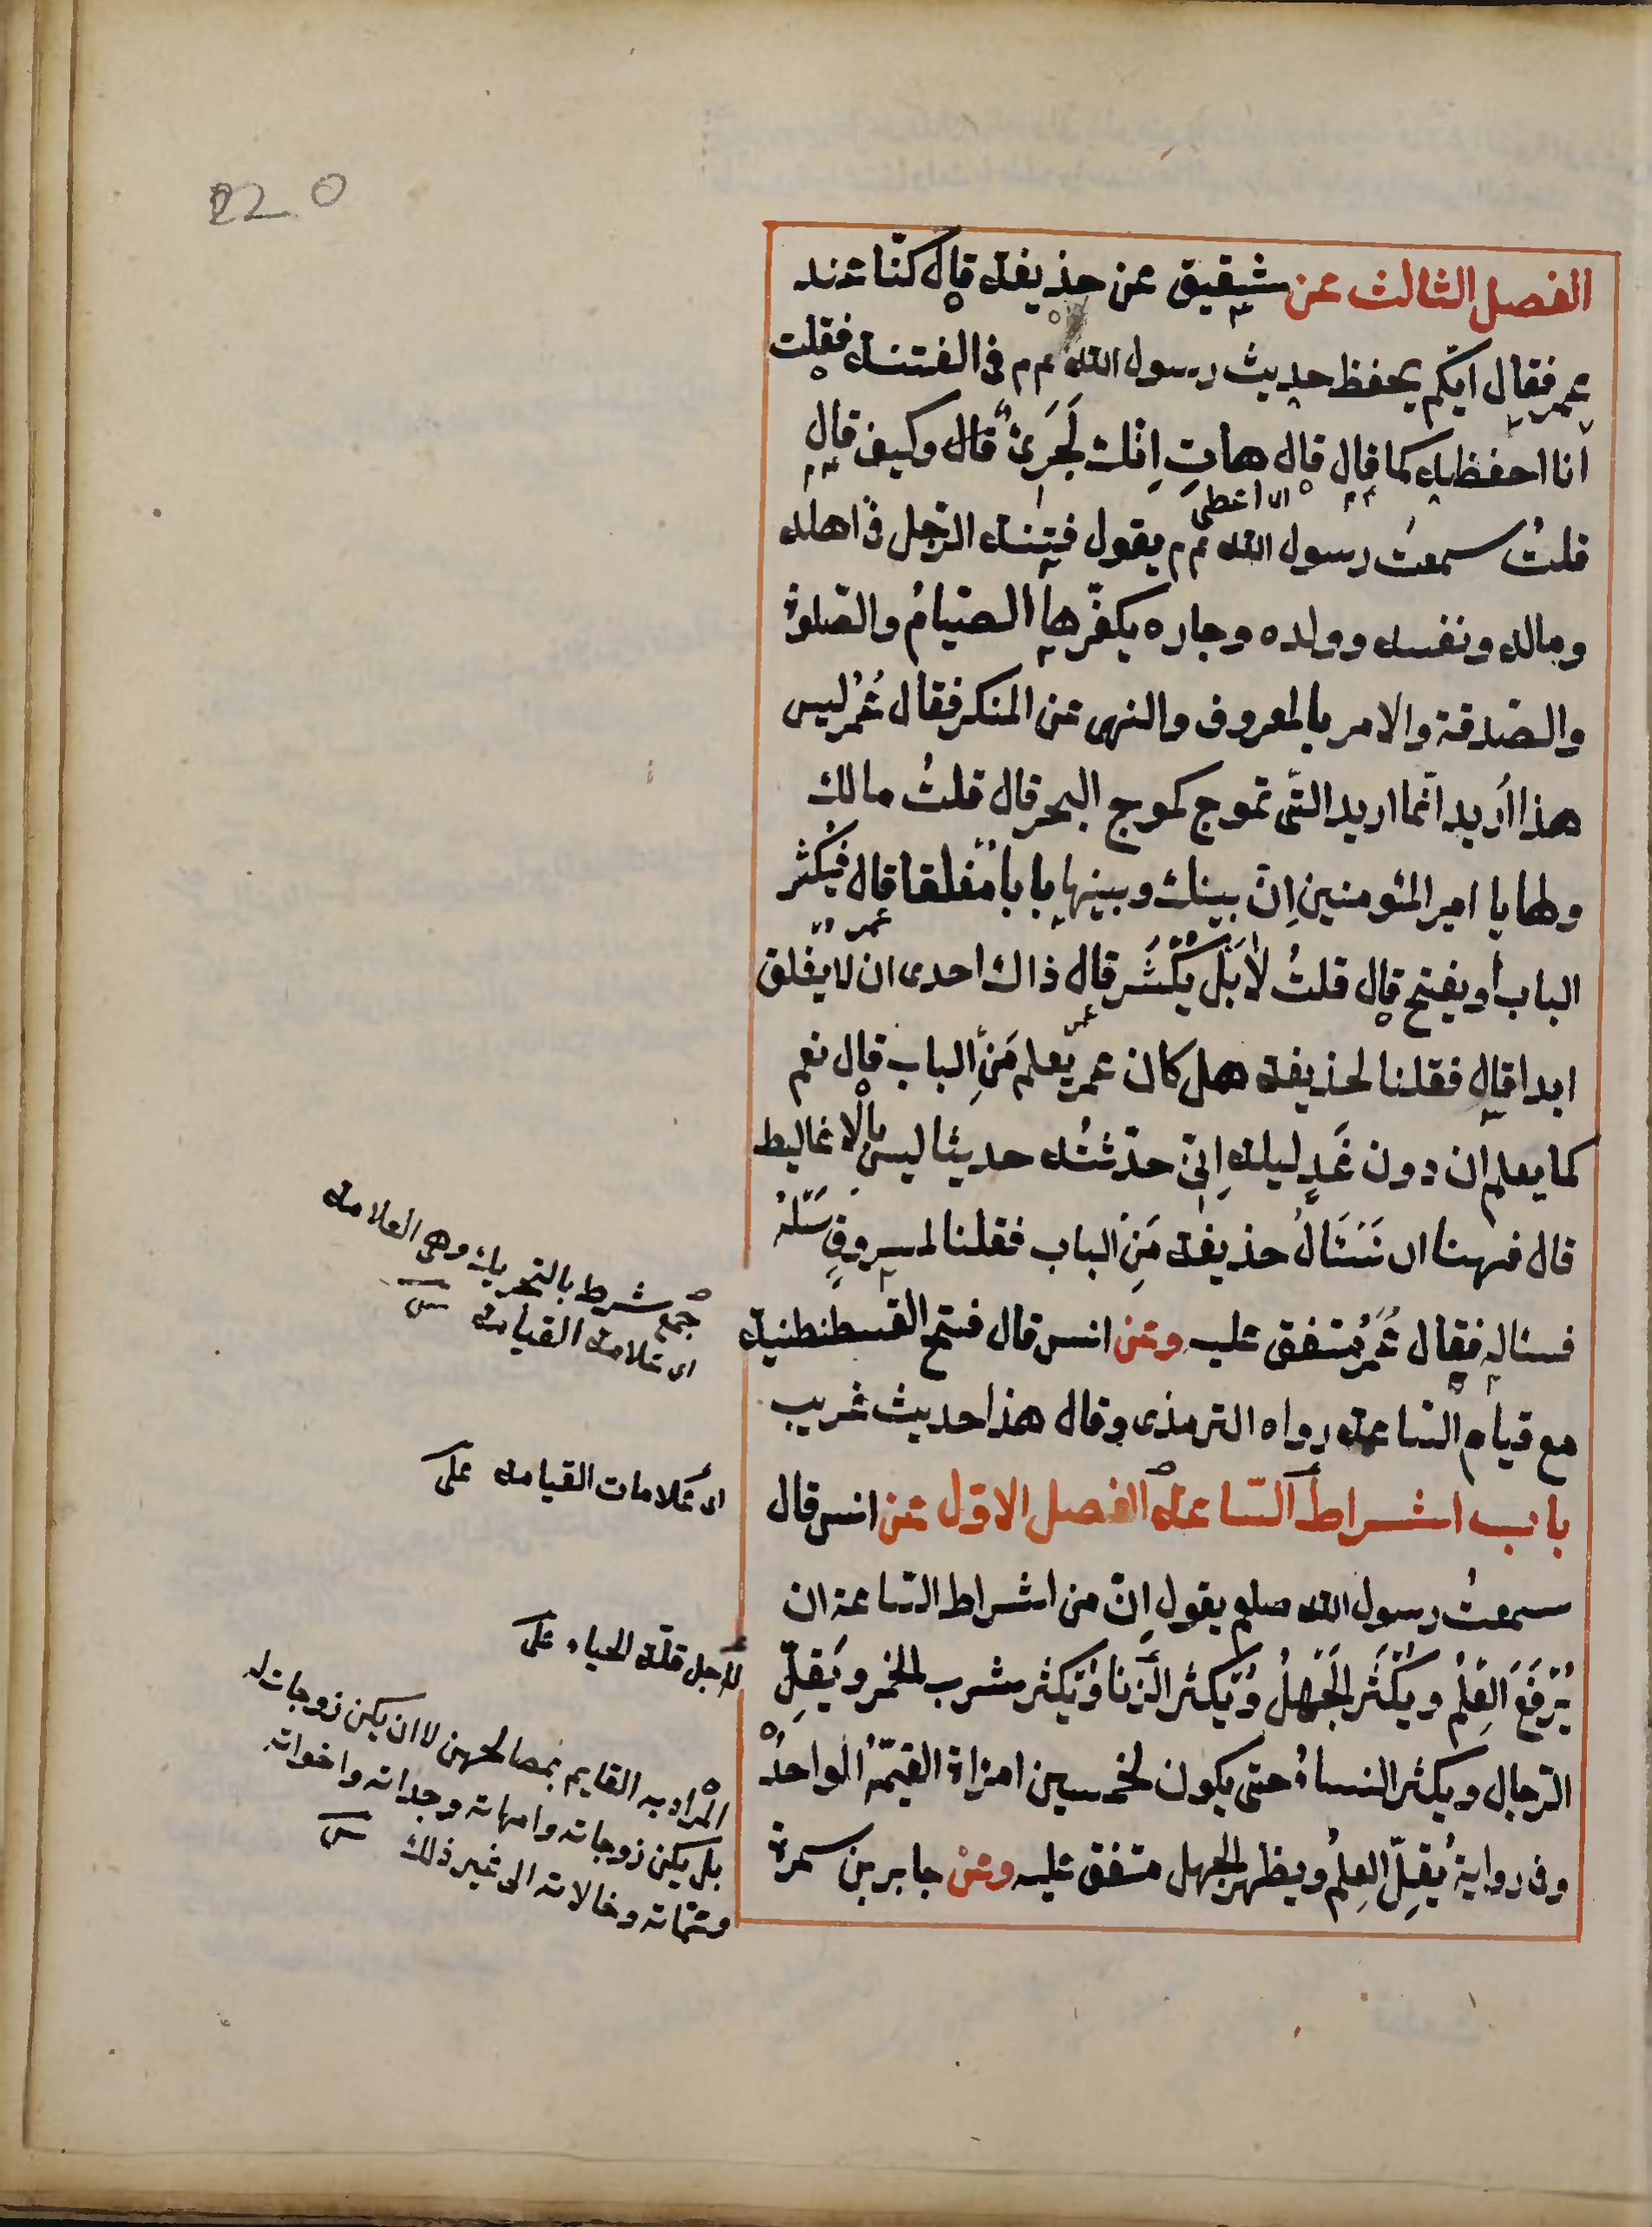 220
الفصل الثالث عن شقيق عن حذيفة قال كنّا عند
عمر فقال ايّكم يحفظ حديث رسول الله عم في الفتنة فقلت
انا احفظه كما قال قال هاتِ اِنّك لَجَرِئٌ قال وكيف قال
اى اعطى
قلتُ سمعتُ رسول الله عم يقول فِتنة الرّجل في اهله
وماله ونفسه وولده وجاره يكفّرها الصّيامُ والصّلوة
والصّدقة والامر بالمعروف والنهى عن المنكر فقال عُمَر ليس
هذا اُريد انّما اريد التّى تموج كموج البحر قال قلتُ مالك
ولها يا امير المئومنين اِنّ بينك وبينها بابا مُغلقا قال فيُكثر
عمر
الباب أو يفتح قال قلتُ لا بَلْ يُكْثَر قال ذاك احدى ان لا يغلق
عمر
ابدا قال فقلنا لحذيفة هل كان عمر يعلم مَنِ الباب قال نعم
كما يعلم ان دون غَدٍ ليلة اِنّى حدّثتُه حديثا ليس بالاغاليط
قال فهبنا ان نَسْئَالَ حذيفة مَنِ الباب فقلنا لمسروقٍ سَلْهُ
فسئاله فقال عُمَرُ متفق عليه وعن انس قال فتح القسطنطنية
مع قيام السّاعة رواه الترمذى وقال هذا حديث غريب
باب اشراط السّاعة الفصل الاوّل عن انس قال
سمعتُ رسول الله صلعم يقول اِنّ من اشراط السّاعة ان
يُرْفَعَ العِلْمُ ويَكْثُرَ الجَهْلُ ويَكثر الزّنا ويَكثر شرب الخمر ويَقِلّ
الرّجال ويكثر النساءُ حتى يكون لخمسين امرَاة القيّمُ الواحدُ
وفى رواية يُقِلّ العِلمُ ويظهر الجهل متفق عليه وعن جابر بن سمرة
جمع شرط بالتحريك وهى العلامة
اى علامة القيامة
اى عَلامات القيامة على
لاجل قلّة الحياء على
المراد به القايم بمصالحهن لا ان يكن زوجات له
بل يكن زوجاته وامهاته وجداته واخواته
وعمّاته وخالاته الى غير ذلك